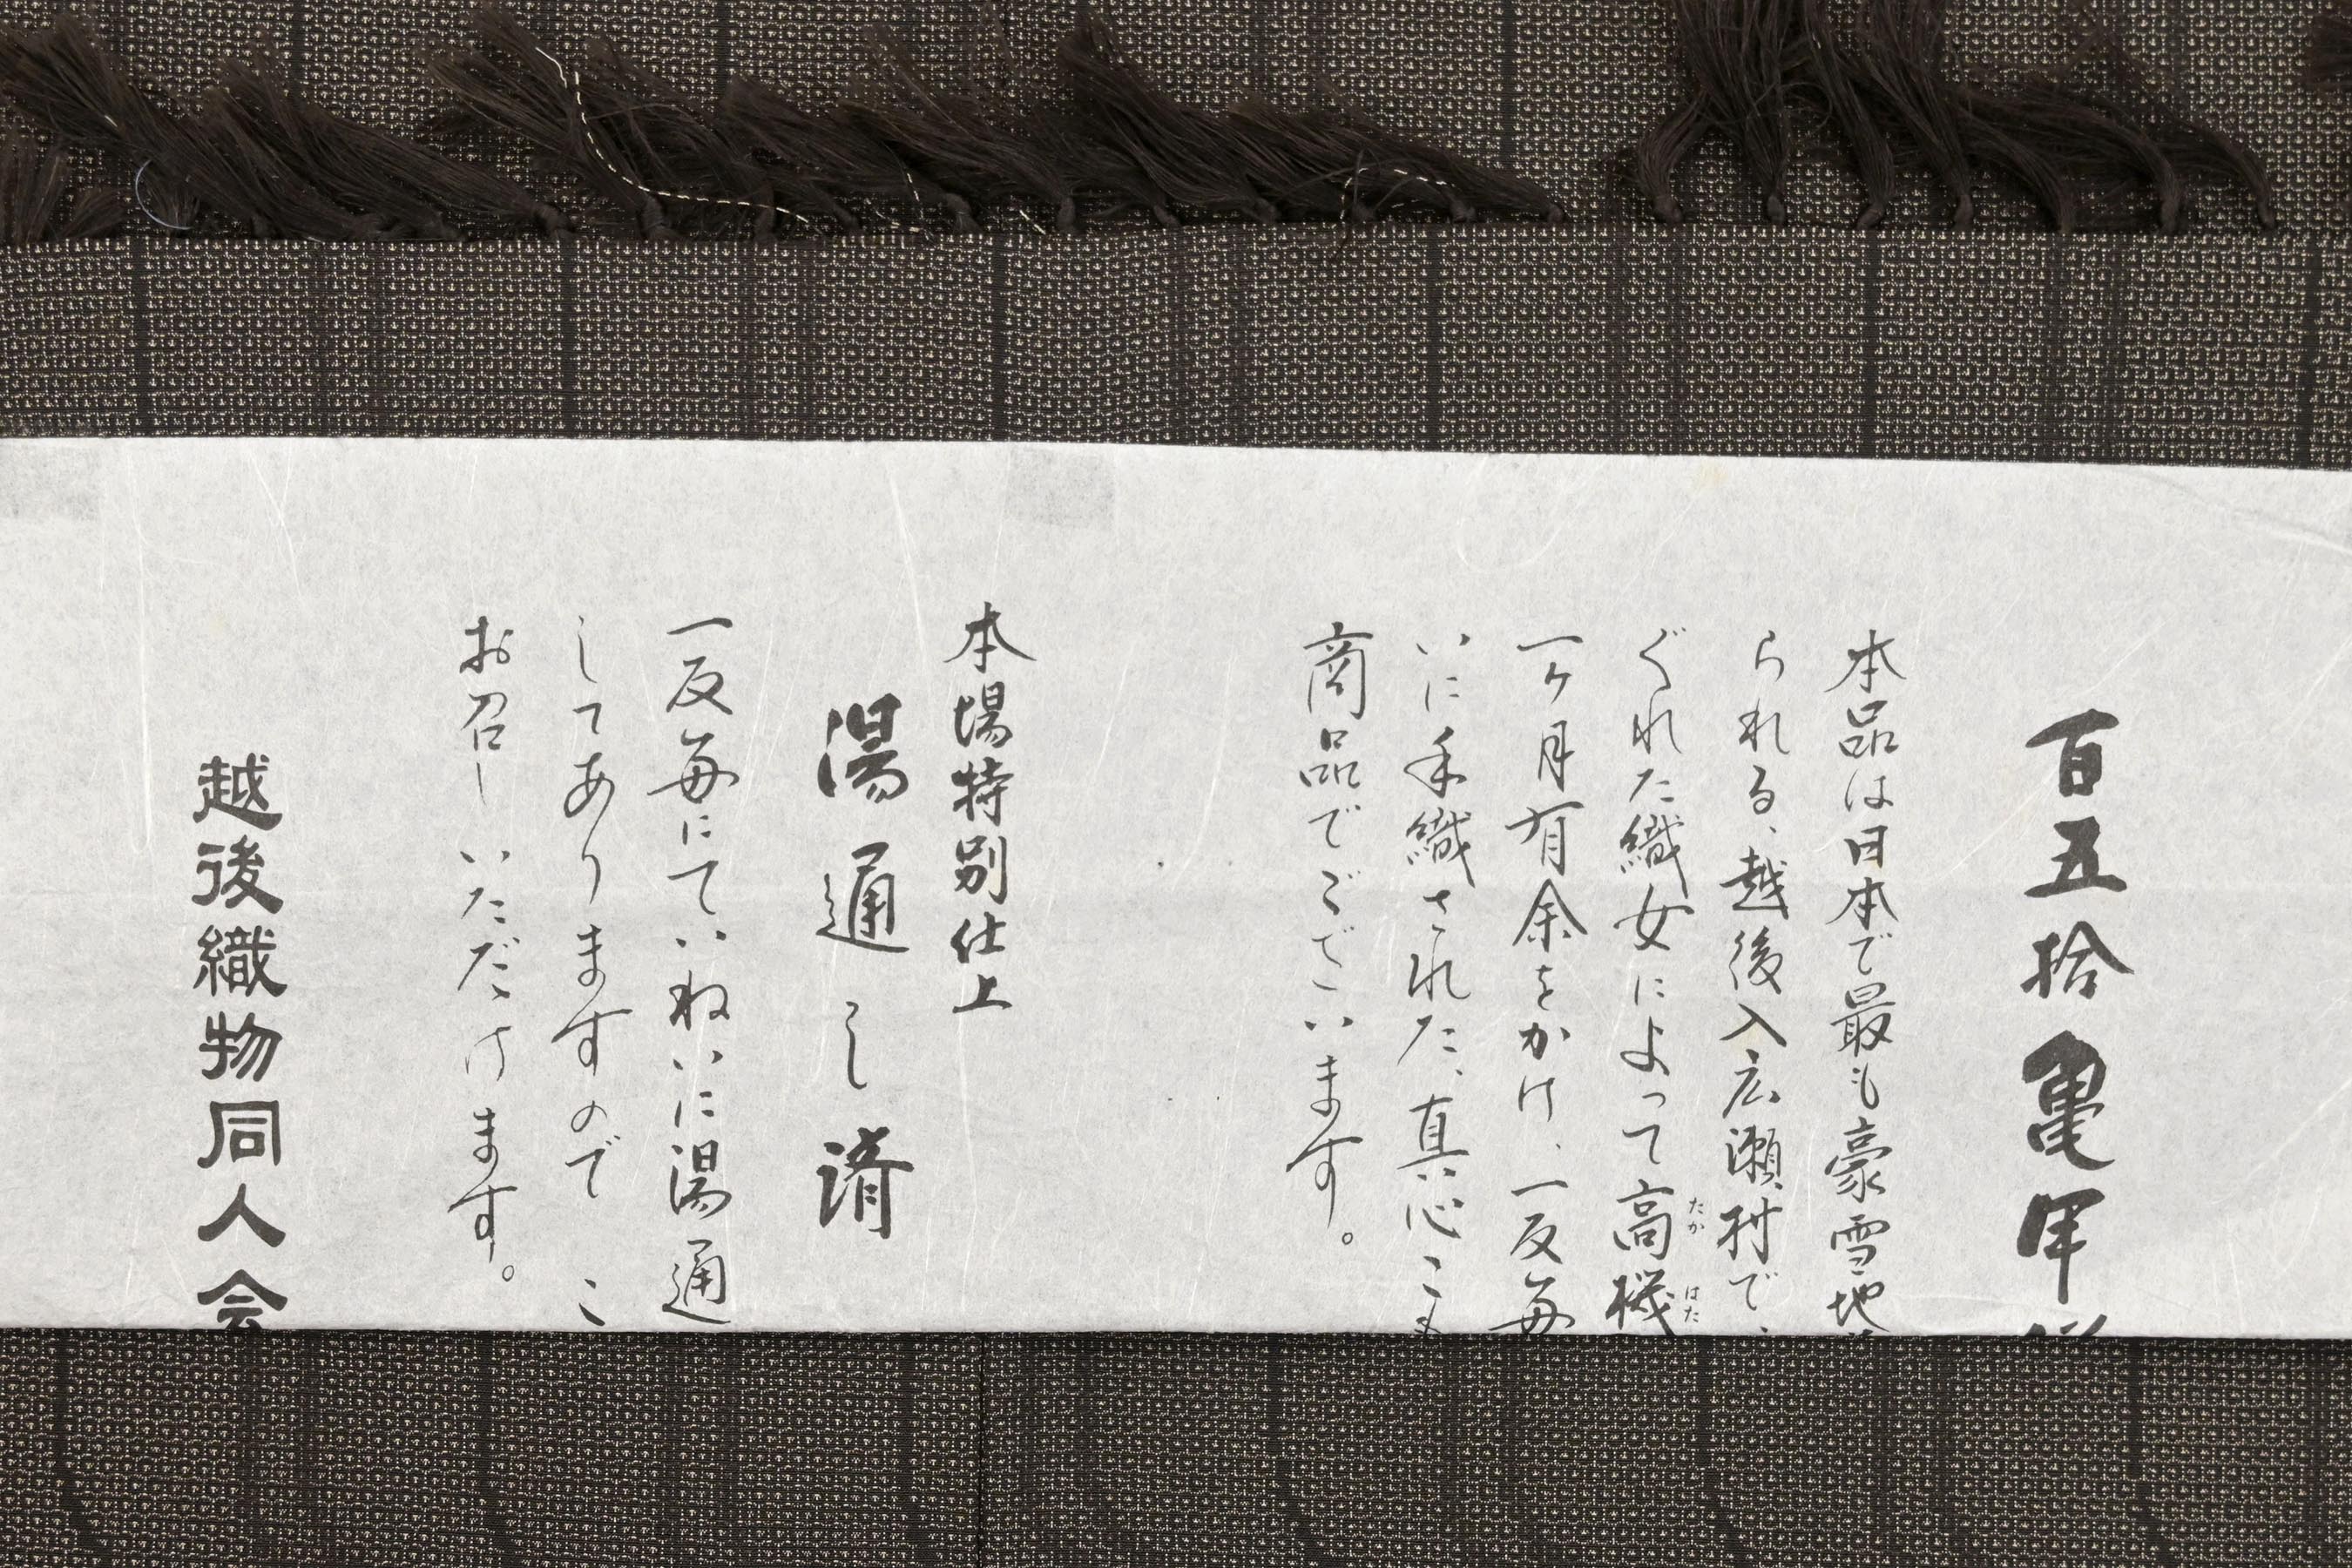 百五拾亀甲
本品は日本で最も豪雪地
られる、越後入広瀬村で、
ぐれた織女によって高機
たか はた
一ヶ月有余をかけ、一反毎
いに手織された、真心こ
商品でございます。
本場特別仕上
湯通し済
一反毎にていねいに湯通
してありますので こ
お召しいただけます。
越後織物同人会